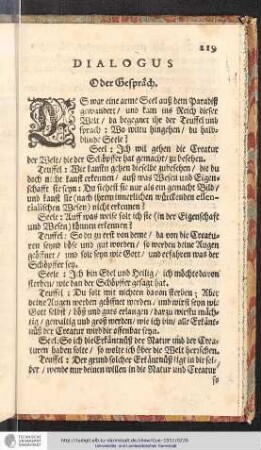 219
DIALOGUS
Oder Gespräch.
ES war eine arme Seel auß dem Paradiß
gewandert / und kam ins Reich dieser
Welt / da begegnet ihr der Teuffel und
sprach : Wo wiltu hingehen / du halb-
blinde Seele ?
Seel : Ich wil gehen die Creatur
der Welt / die der Schöpffer hat gemacht / zu besehen.
Teuffel : Wie kanstu gehen dieselbe zubesehen / die du
doch nicht kanst erkennen / auß was Wesen und Eigen-
schafft sie seyn : Du siehest sie nur als ein gemacht Bild /
und kanst sie (nach ihrem innerlichen würckenden essen-
tialischen Wesen) nicht erkennen ?
Seele : Auff was weise solt ich sie (in der Eigenschafft
und Wesen) können erkennen ?
Teuffel : So du zu erst von deme / da von die Creatu-
ren seynd böse und gut worden / so werden deine Augen
geöffnet / und solt seyn wie Gott / und erfahren was der
Schöpffer sey.
Seele : Ich bin Edel und Heilig / ich möchte davon
sterben / wie dan der Schöpffer gesagt hat.
Teuffel : Du solt mit nichten davon sterben ; Aber
deine Augen werden geöffnet werden / und wirst seyn wie
Gott selbst / böß und gutes erlangen / darzu wirstu mäch-
tig / gewaltig und groß werden / wie ich bin / alle Erkänt-
nüß der Creatur wird dir offenbar seyn.
Seel. So ich die Erkäntnüß der Natur und der Crea-
turen haben solte / so wolte ich über die Welt herschen.
Teuffel : Der grund solcher Erkäntnüß ligt in dir sel-
ber / wende nur deinen willen in die Natur und Creatur
so